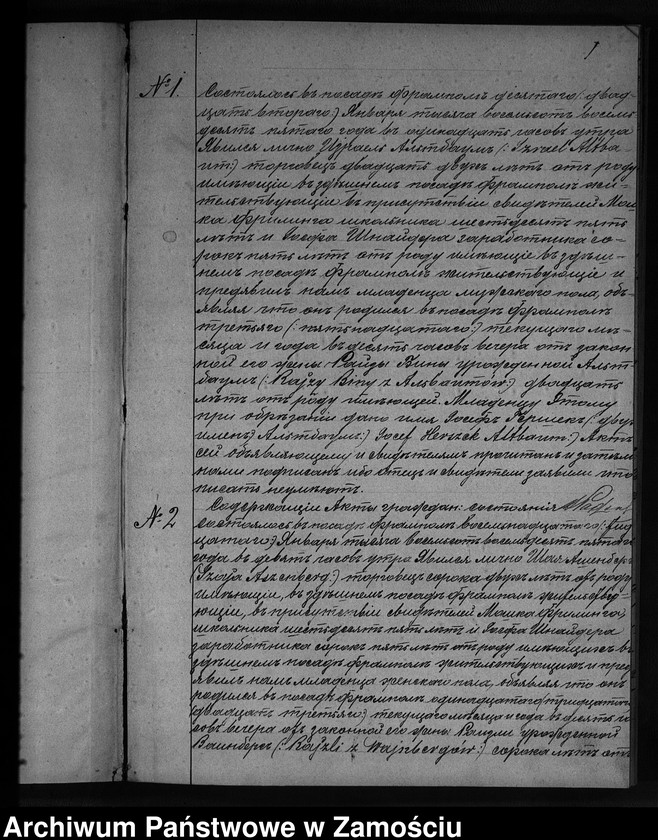 1
№ 1. Состоялось въ посадѣ Фрамполь десятаго (: двад-
цать втораго:) Января тысяча восемьсотъ восемь
десятъ пятаго года въ одинадцать часовъ утра
Явился лично Изра́ель Альтбаумъ (: Izrael Altba-
um:) торговецъ двадцать двухъ лѣтъ отъ роду
имѣющій въ здѣшнемъ посадѣ Фрамполь жи-
тельствующій въ присутствіи свидѣтелей Мош-
ка Фрилинга школьника шестьдесятъ пять
лѣтъ и Іосфа Шнайдера заработника со-
рокъ пять лѣтъ отъ роду имѣющіе въ здѣш-
немъ посадѣ Фрамполь жительствующіе и
предъявилъ намъ младенца мужескаго пола, объ-
являя что онъ родился въ посадѣ Фрамполь
третьяго (: пятьнадцатаго:) текущаго мѣ-
сяца и года въ десять часовъ вечера отъ закон
ной его жены Райзы Бины урожденной Альт-
баумъ (: Rajzy Biny z Альбаumów:) двадцать
лѣтъ отъ роду имѣющей. Младенцу Этому
при обрѣзаніи дано имя Іосефъ Гершекъ (двухъ
именъ) Альтбаумъ (: Josef Herszek Altbaum:) Актъ
сей объявляющему и свидѣтелямъ прочитанъ и затемъ
нами подписанъ ибо отецъ и свидѣтели заявили что
писать неумѣютъ.
Содержающій Акты граждан: состоянія
№ 2 Состоялось въ посадѣ Фрамполь восемьнадцатаго (:
цатаго:) Января тысяча восемьсотъ восемьдесятъ пятаго
года въ девять часовъ утра Явился лично Шая Ашенберъ
(Szaja Aszenberg:) торговецъ сорока двухъ лѣтъ отъ роду
имѣющій, въ здѣшнемъ посадѣ Фрамполь жительству-
ющій, въ присутствіи свидѣтелей Мошка Фрилинга
школьника шестьдесятъ пять лѣтъ и Іосфа Шнайдера
заработника сорокъ пять лѣтъ отъ роду имѣющихъ въ
здѣшнемъ посадѣ Фрамполь жительствующихъ и пред
явилъ намъ младенца женскаго пола, объявляя что онъ
родился въ посадѣ Фрамполь одинадцатаго
(двадцать третьяго:) текущаго мѣсяца и года въ десять ча
совъ вечера отъ законной его жены Райзли урожденной
Вайнбергъ (: Rajzli z Wajnbergów:) сорока лѣтъ отъ
Archiwum Państwowe w Zamościu